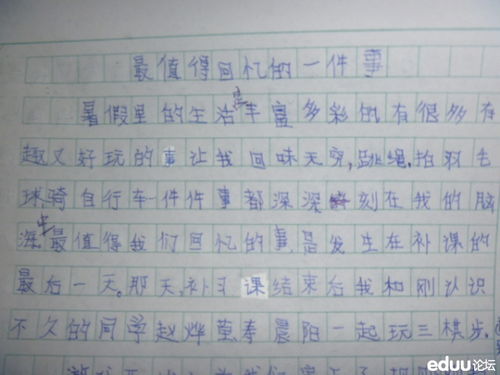 最值得回忆的一件事
暑假里的生活丰富多彩的有很多有
趣又好玩的事让我回味无穷,跳绳,拍羽毛
球骑自行车一件件事都深深刻在我的脑
海中最值得我们回忆的事是发生在补课的
最后一天。那天,补习课结束后我和刚认识
不久的同学赵烨莹,李晨阳一起玩三棋步,
eduu论坛